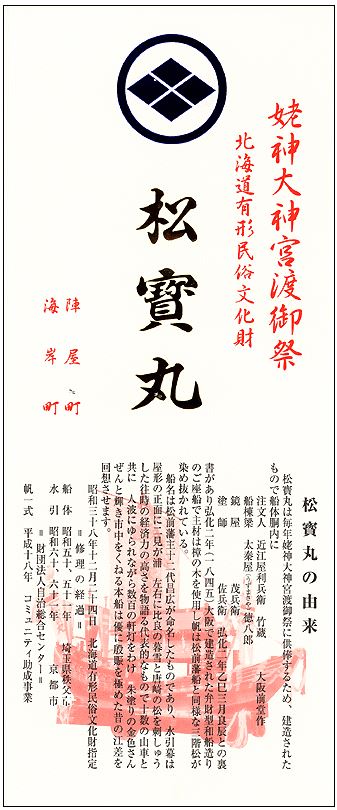 姥神大神宮渡御祭
北海道有形民俗文化財
松寶丸
陣屋町
海岸町
松寶丸の由来
松寶丸は毎年姥神大神宮渡御祭に供俸するため、建造された
もので船体胴内に
注文人 近江屋利兵衛 竹蔵 大阪前堂作
船棟梁 太秦屋(うずまさや)徳八郎
鏡屋 茂兵衛
塗師 佐兵衛 弘化二年乙巳三月良辰との裏
書があり弘化二年(一八四五)大阪で建造された弁財型和船造り
のご座船で主材は樟の木を使用し帆は松前藩船と同様な三階松が
染め抜かれている。
船名は松前藩主十二代昌広が命名したものであり、水引幕は
屋形の正面に二見が浦 左右に比良の暮雪と唐崎の松を刺しゅう
した往時の経済力の高さを物語る代表的なもので十数の山車と
共に 人波にゆられながら数百の軒灯をわけ 朱塗りの金色さん
ぜんと輝き市中をくねる本船は優に殷賑を極めた昔の江差を
回想させます。
昭和三十八年十二月二十四日 北海道有形民俗文化財指定
=修理の経過=
船体 昭和五十、五十一年 埼玉県秩父市
水引 昭和六十、六十一年 京都市
=財団法人自治総合センター=
帆一式 平成十八年 コミュニティ助成事業